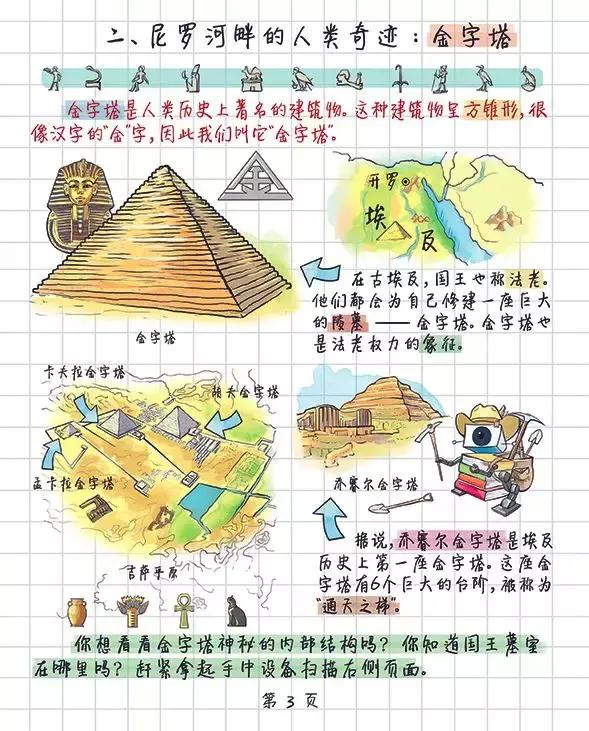 二、尼罗河畔的人类奇迹：金字塔
金字塔是人类历史上著名的建筑物。这种建筑物呈方锥形，很
像汉字的“金”字，因此我们叫它“金字塔”。
开罗
埃及
金字塔
在古埃及，国王也称法老。
他们都会为自己修建一座巨大
的陵墓——金字塔。金字塔也
是法老权力的象征。
卡夫拉金字塔
胡夫金字塔
孟卡拉金字塔
吉萨平原
乔赛尔金字塔
据说，乔赛尔金字塔是埃及
历史上第一座金字塔。这座金
字塔有6个巨大的台阶，被称为
“通天之梯”。
你想看看金字塔神秘的内部结构吗？你知道国王墓室
在哪里吗？赶紧拿起手中设备扫描右侧页面。
第 3 页